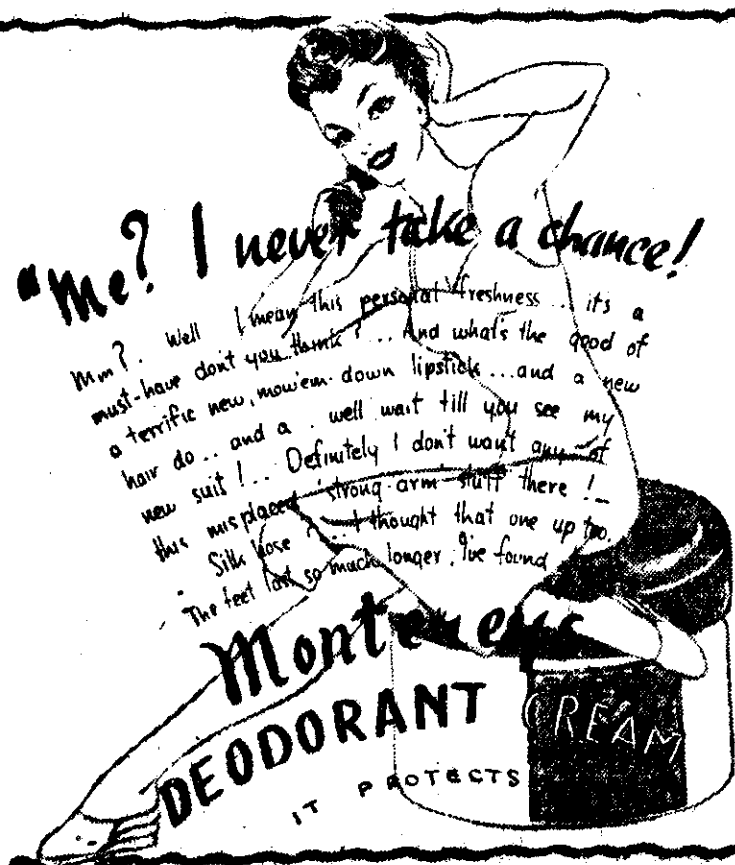 "Me? I never take a chance!
Mm?. Well I mean this personal freshness... it's a
must-have don't you think?... And what's the good of
a terrific new, mow'em-down lipstick...and a new
hair do.. and a . well wait till you see my
new suit!.. Definitely I don't want any of
this misplaced 'strong-arm' stuff there!_
Silk hose?...I thought that one up too.
The feet last so much longer, I've found
DEODORANT CREAM
IT PROTECTS